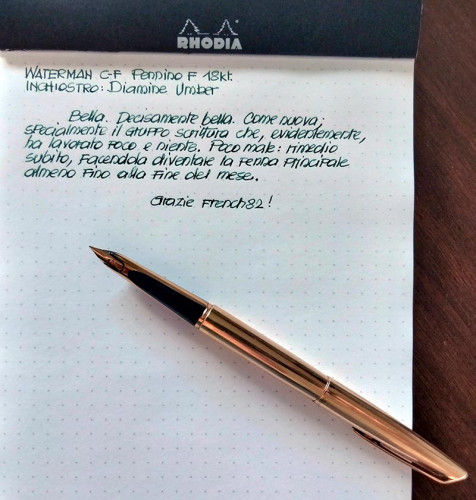 RHODIA
WATERMAN C-F Pennino F 18kt.
INCHIOSTRO: Diamine Umber
Bella. Decisamente bella. Come nuova;
specialmente il gruppo scrittura che, evidentemente,
ha lavorato poco e niente. Poco male: rimedio
subito, facendola diventare la penna principale
almeno fino alla fine del mese.
Grazie French82!